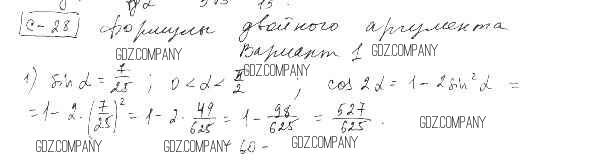 С-28 Формулы двойного аргумента
GDZ.COMPANY Вариант 1 GDZ.COMPANY
1) sin α = 7/25 ; 0 < α < π/2 , GDZ.COMPANY cos 2α = 1 - 2 sin² α =
= 1 - 2 · (7/25)² = 1 - 2 · 49/625 = 1 - 98/625 = 527/625 . GDZ.COMPANY
GDZ.COMPANY GDZ.COMPANY 60 -